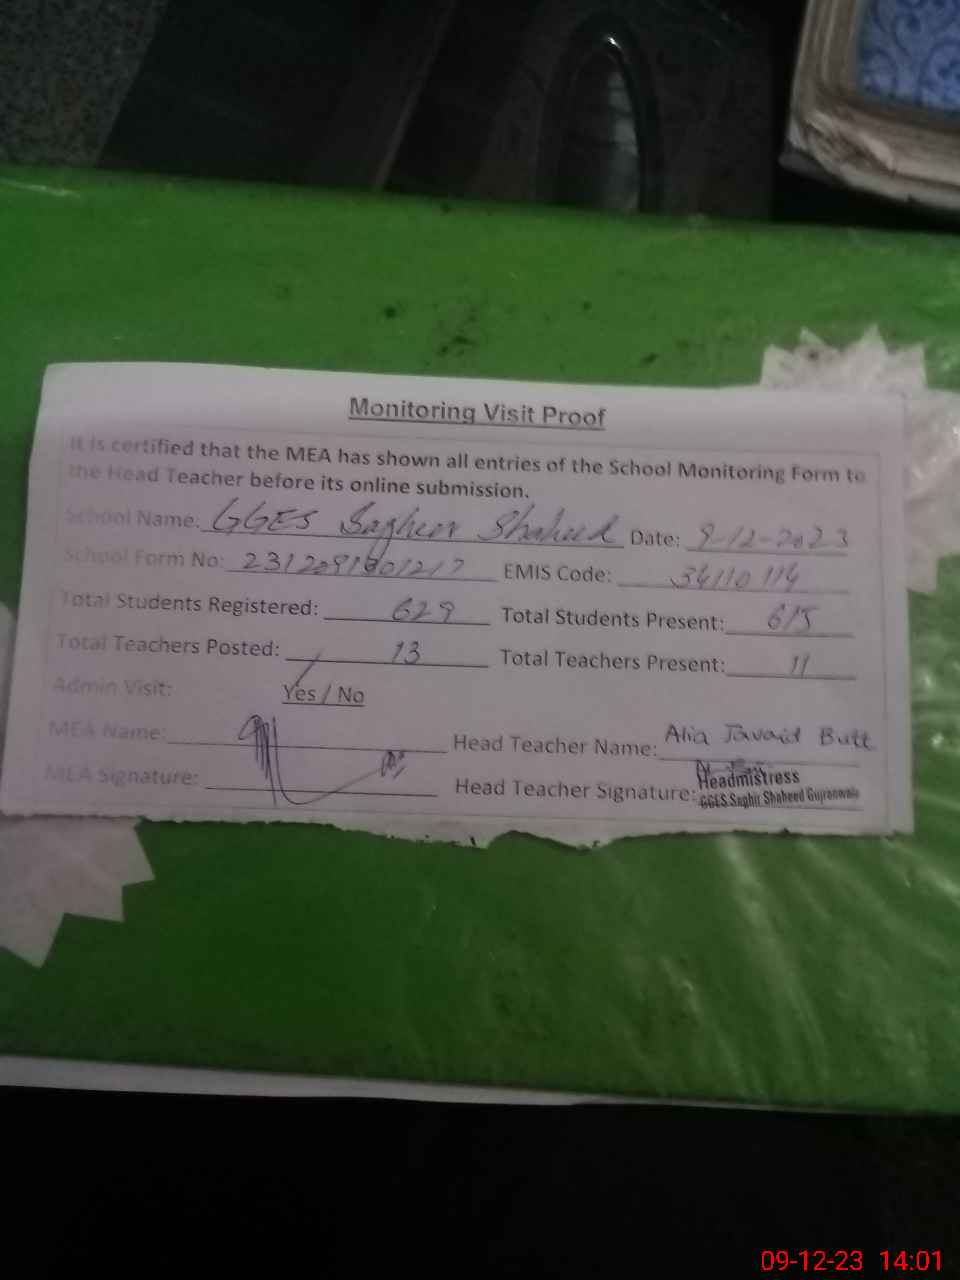 Monitoring Visit Proof
It is certified that the MEA has shown all entries of the School Monitoring Form to
the Head Teacher before its online submission.
School Name: GGES Saghir Shaheed Date: 9-12-2023
School Form No: EMIS Code: 34110114
Total Students Registered: 629 Total Students Present: 615
Total Teachers Posted: 13 Total Teachers Present: 11
Admin Visit: Yes / No
MEA Name: Head Teacher Name: Alia Javaid Butt
MEA Signature: Head Teacher Signature: Headmistress
GGES Saghir Shaheed Gujranwala
09-12-23 14:01